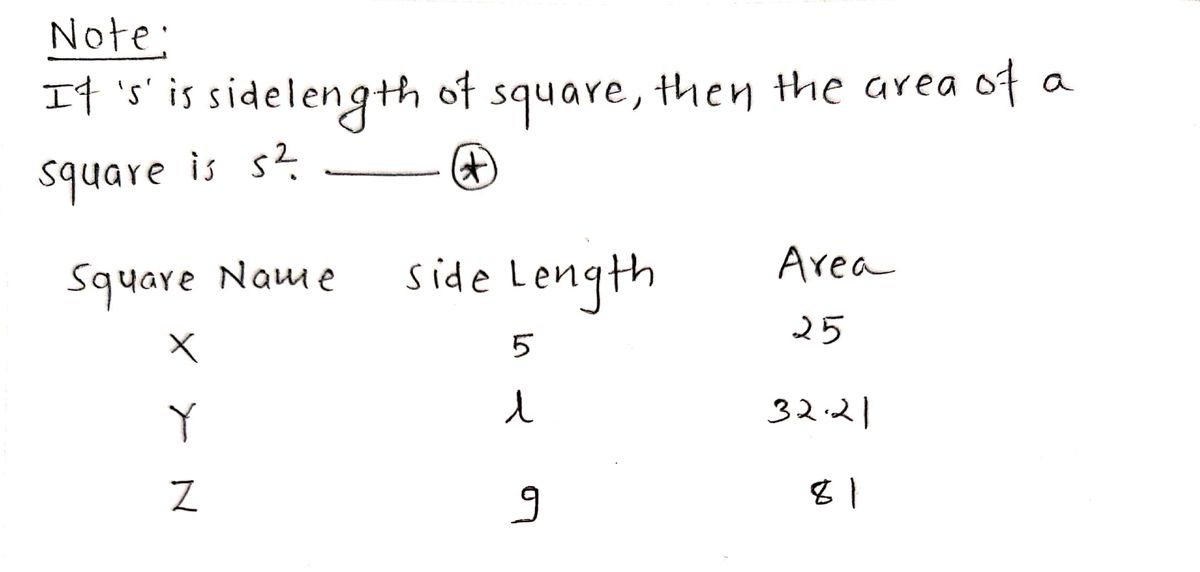 Note:
If 's' is sidelength of square, then the area of a
square is s². —— ⊛
Square Name Side Length Area
X 5 25
Y l 32.21
Z 9 81